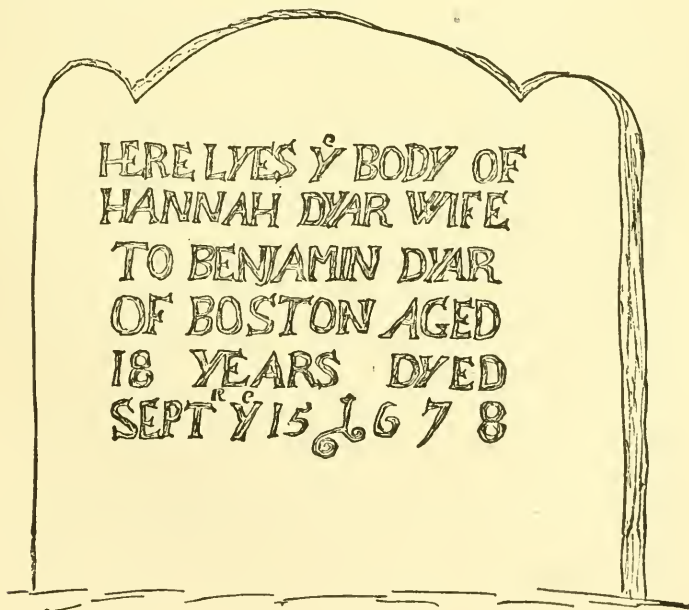 HERE LYES Yᵉ BODY OF
HANNAH DYAR WIFE
TO BENJAMIN DYAR
OF BOSTON AGED
18 YEARS DYED
SEPTᴿ Yᵉ 15 1678